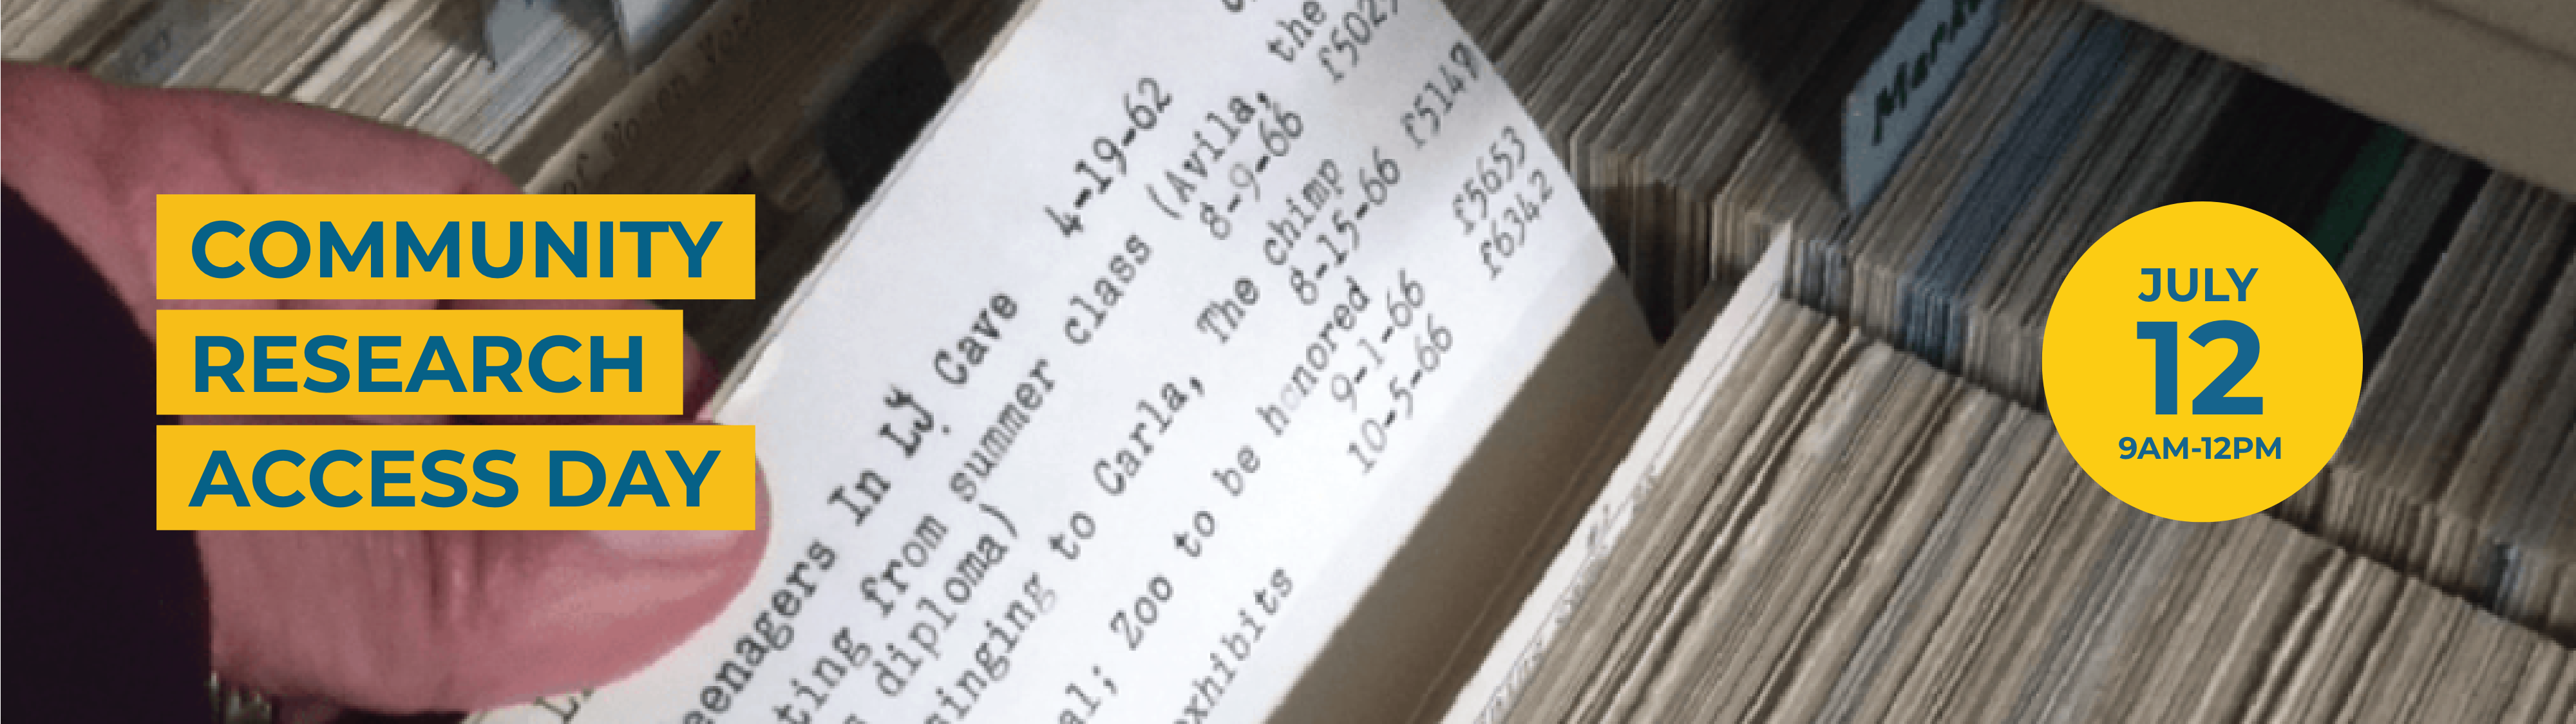 COMMUNITY
RESEARCH
ACCESS DAY
JULY
12
9AM-12PM
eenagers In LJ Cave 4-19-62
ting from summer class (Avila, the
diploma) 8-9-66
singing to Carla, The chimp
8-15-66 f5149
al; Zoo to be honored
9-1-66 f5653
10-5-66 f6342
exhibits